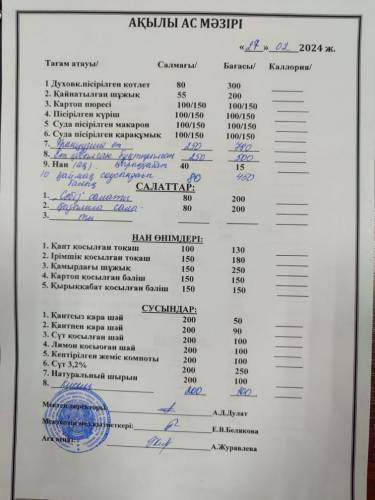 АҚЫЛЫ АС МӘЗІРІ
«27» 02 2024 ж.
Тағам атауы/ Салмағы/ Бағасы/ Каллория/
1 Духовк.пісірілген котлет 80 300
2. Қайнатылған шұжық 55 200
3. Картоп пюресі 100/150 100/150
4. Пісірілген күріш 100/150 100/150
5. Суда пісірілген макарон 100/150 100/150
6. Суда пісірілген қарақұмық 100/150 100/150
7. 250 700
8. 250 500
9. Нан (ақ) 40 15
10 80 450
САЛАТТАР:
1. Сәбіз салаты 80 200
2. 80 200
3.
НАН ӨНІМДЕРІ:
1. Қант қосылған тоқаш 100 130
2. Ірімшік қосылған тоқаш 150 180
3. Қамырдағы шұжық 150 250
4. Картоп қосылған бәліш 150 150
5. Қырыққабат қосылған бәліш 150 150
СУСЫНДАР:
1. Қантсыз қара шай 200 50
2. Қантпен қара шай 200 90
3. Сүт қосылған шай 200 100
4. Лимон қосыоған шай 200 100
5. Кептірілген жеміс компоты 200 100
6. Сүт 3,2% 200 250
7. Натуральный шырын 200 100
8. 200 100
Мектеп директоры: А.Д.Дулат
Мектептің мед.қызметкері: Е.В.Белякова
Аға аспаз: А.Журавлева